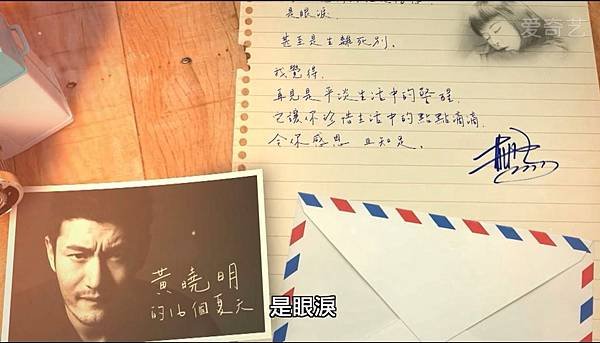 爱奇艺
是眼淚.
甚至是生離死別.
我覺得.
再見是平淡生活中的警醒.
它讓你珍惜生活中的點點滴滴.
令你感恩 且知足.
黃曉明
的16個夏天
是眼淚